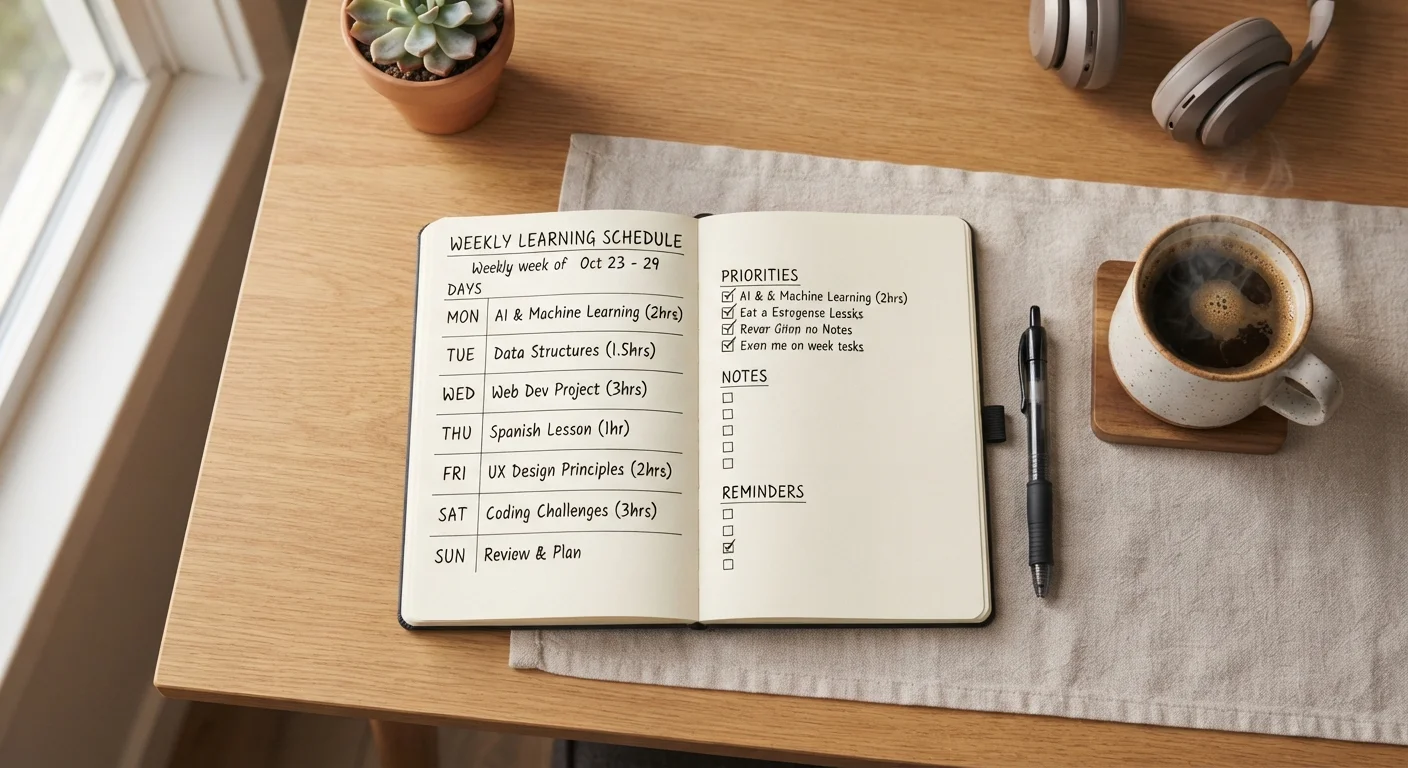 WEEKLY LEARNING SCHEDULE
Weekly week of Oct 23 - 29
DAYS
MON AI & Machine Learning (2hrs)
TUE Data Structures (1.5hrs)
WED Web Dev Project (3hrs)
THU Spanish Lesson (1hr)
FRI UX Design Principles (2hrs)
SAT Coding Challenges (3hrs)
SUN Review & Plan
PRIORITIES
AI & & Machine Learning (2hrs)
Eat a
no Notes
me on week tesks
NOTES
REMINDERS